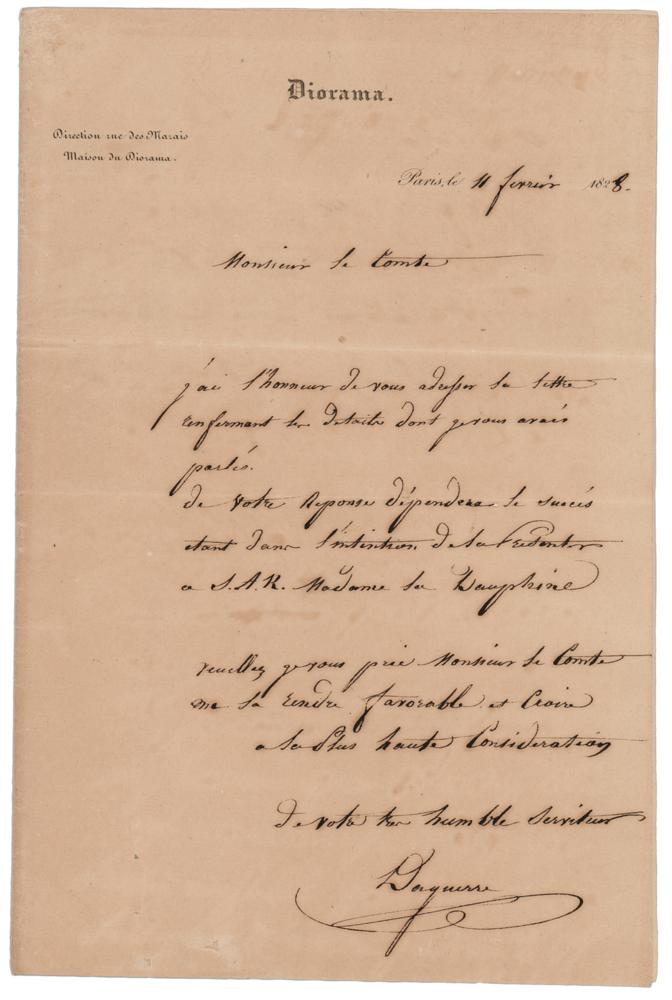 Diorama.
Direction rue des Marais
Maison du Diorama.
Paris, le 11 fevrier 1828.
Monsieur le Comte
j'ai l'honneur de vous adresser la lettre
renfermant les details dont je vous avais
parlés.
de votre Reponse dépendera le succés
etant dans l'intention de la Présenter
a S.A.R. Madame la Dauphine
veuillez je vous prie Monsieur le Comte
me la rendre favorable et Croire
a la Plus haute Consideration
de votre tres humble Serviteur
Daguerre